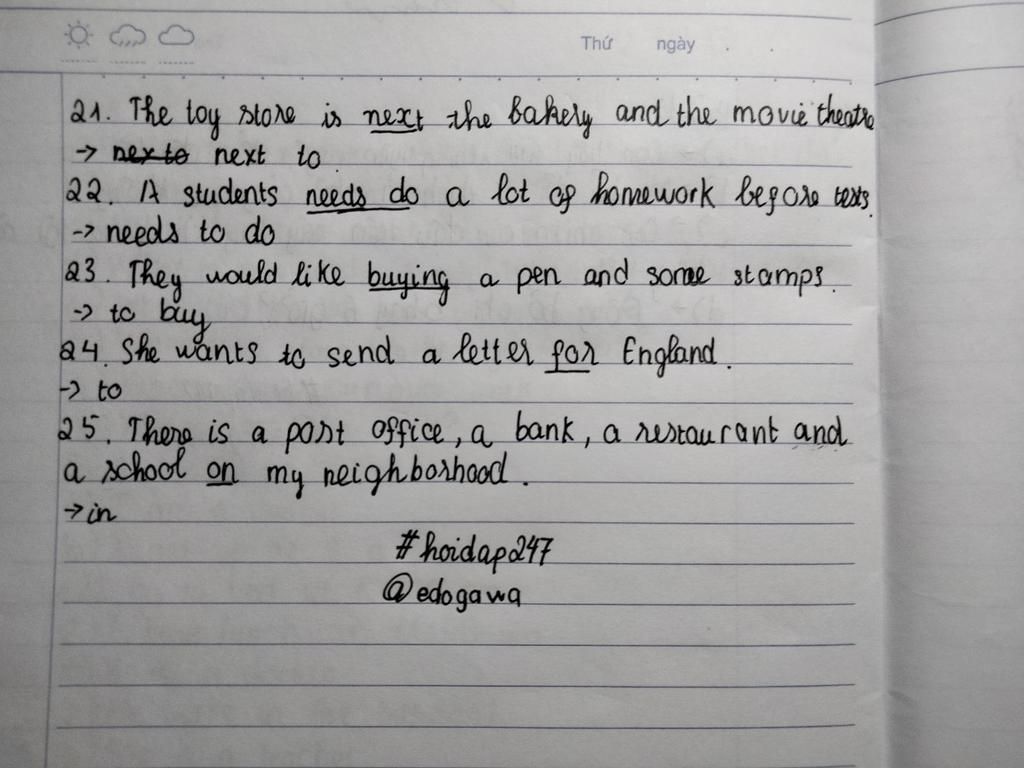 Thứ ngày . .
21. The toy store is next the bakery and the movie theatre
-> nex to next to
22. A students needs do a lot of homework before tests.
-> needs to do
23. They would like buying a pen and some stamps.
-> to buy
24. She wants to send a letter for England.
-> to
25. There is a post office, a bank, a restaurant and
a school on my neighborhood.
-> in
#hoidap247
@edogawa